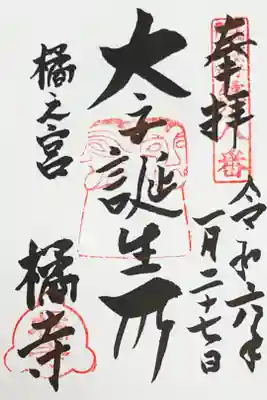 奉拝
令和六年
一月二十七日
太子誕生所
橘之宮
橘寺